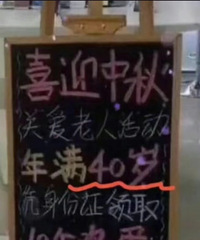 喜迎中秋
关爱老人活动
年满40岁
凭身份证领取